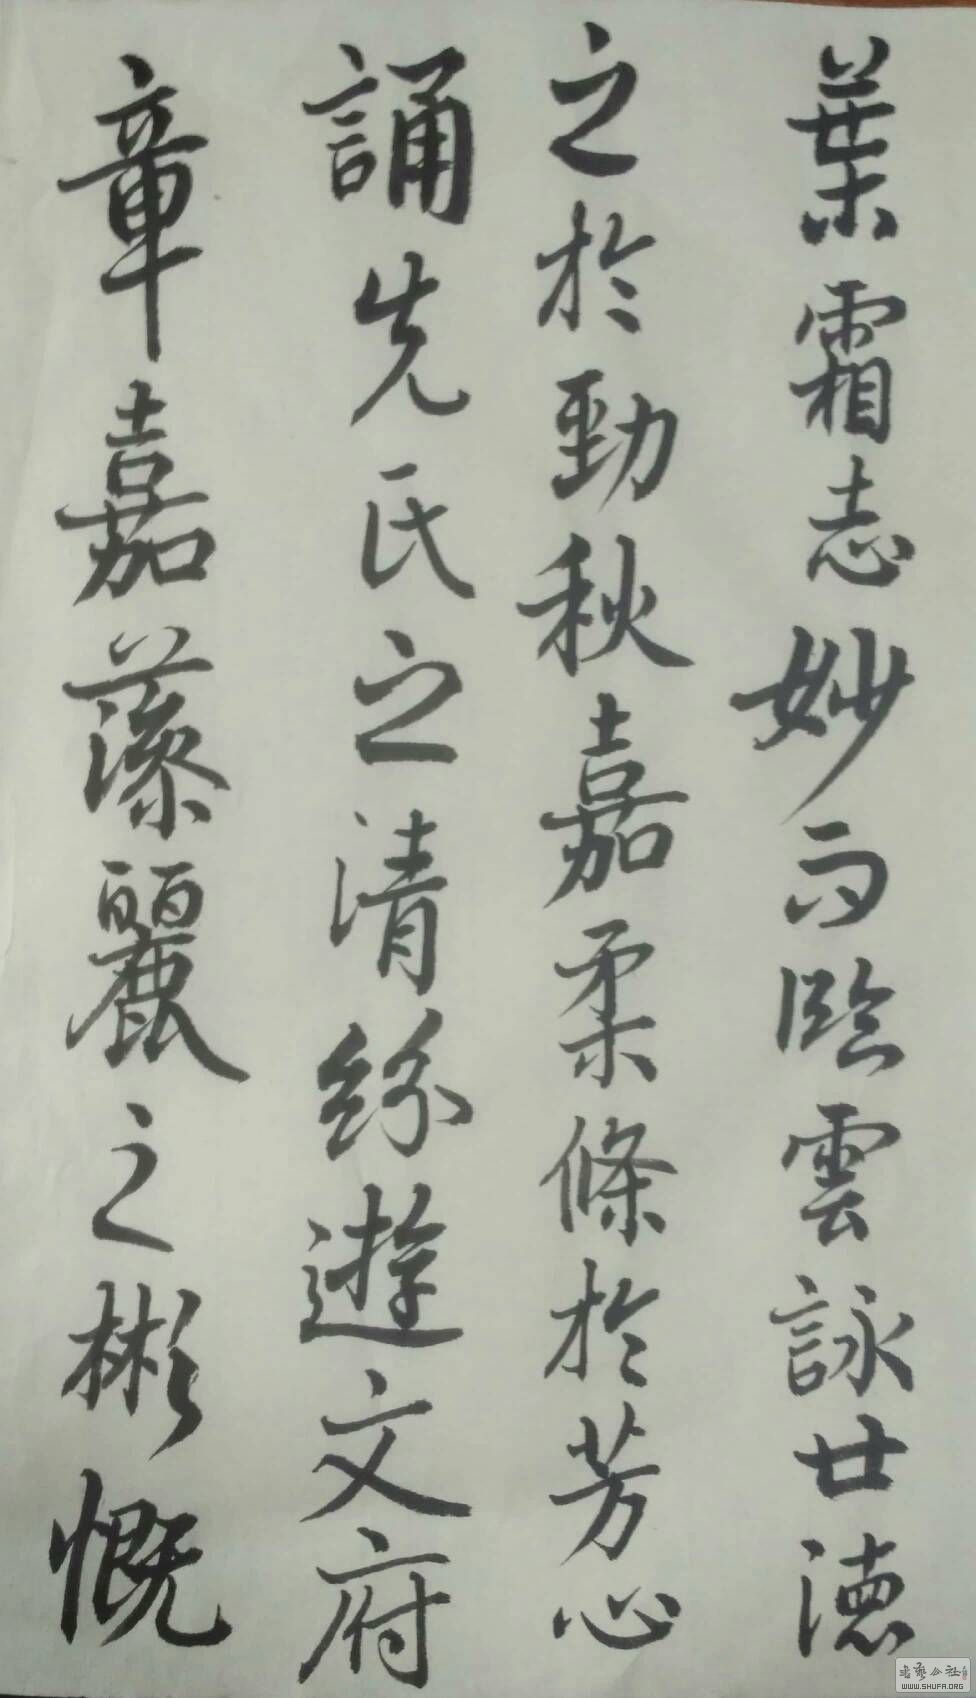 葉霜志妙而臨雲詠廿德
之於勁秋嘉柔條於芳心
誦先民之清紛遊文府
章嘉藻麗之彬慨
書藝公社
WWW.SHUFA.ORG